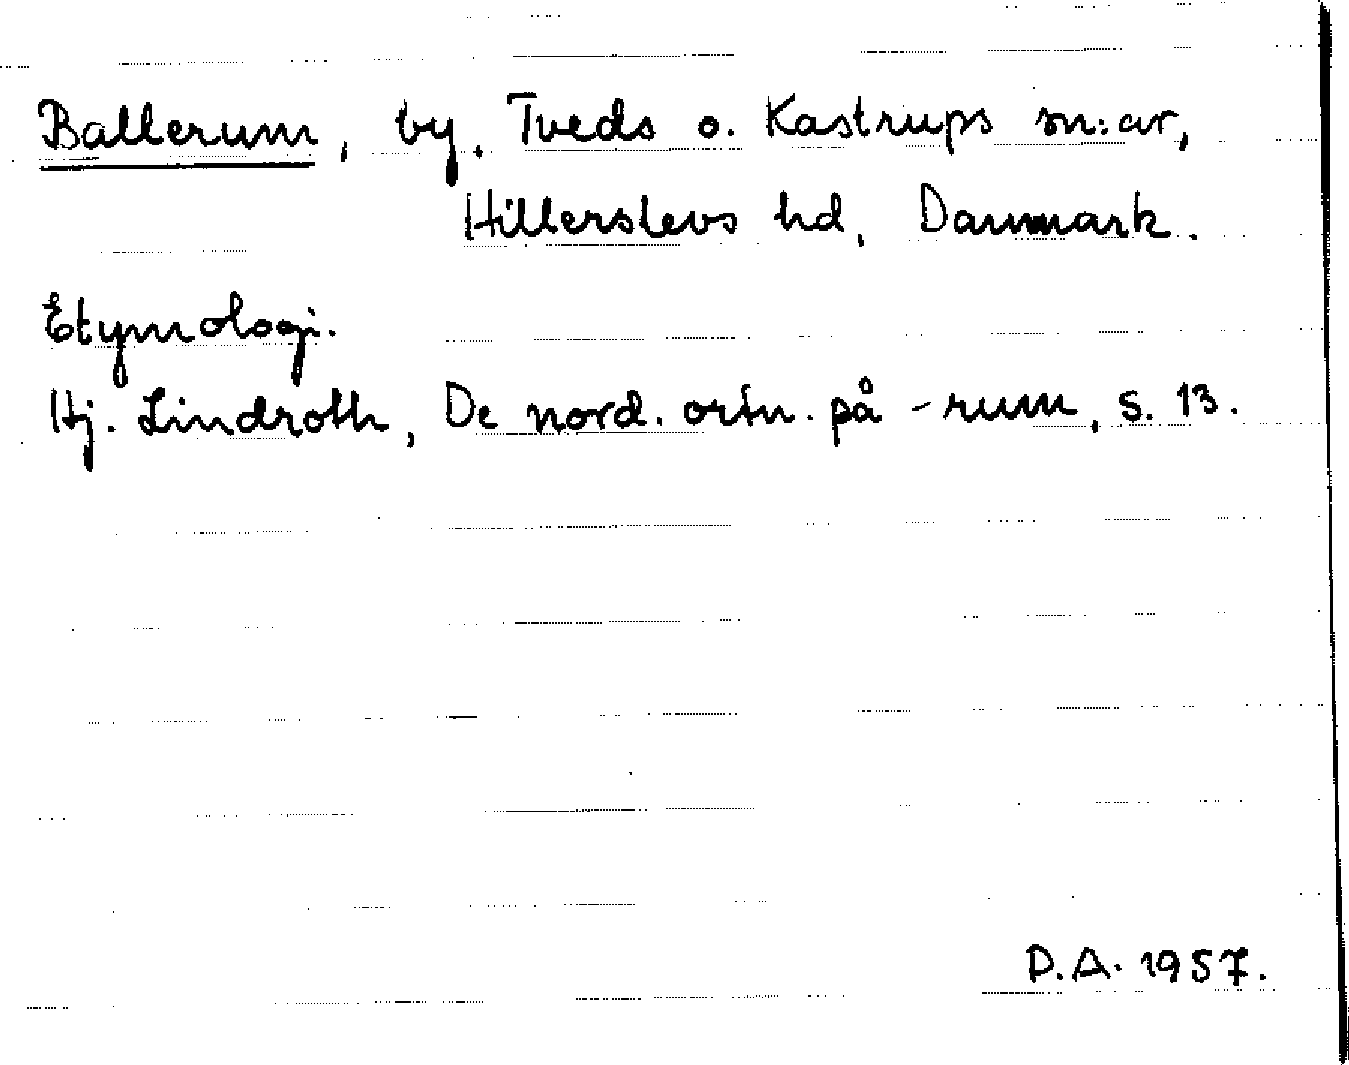 Ballerum, by, Tveds o. Kastrups sn:ar,
Hillerslevs hd, Danmark.
Etymologi.
Hj. Lindroth, De nord. ortn. på -rum, s. 13.
D.A. 1957.